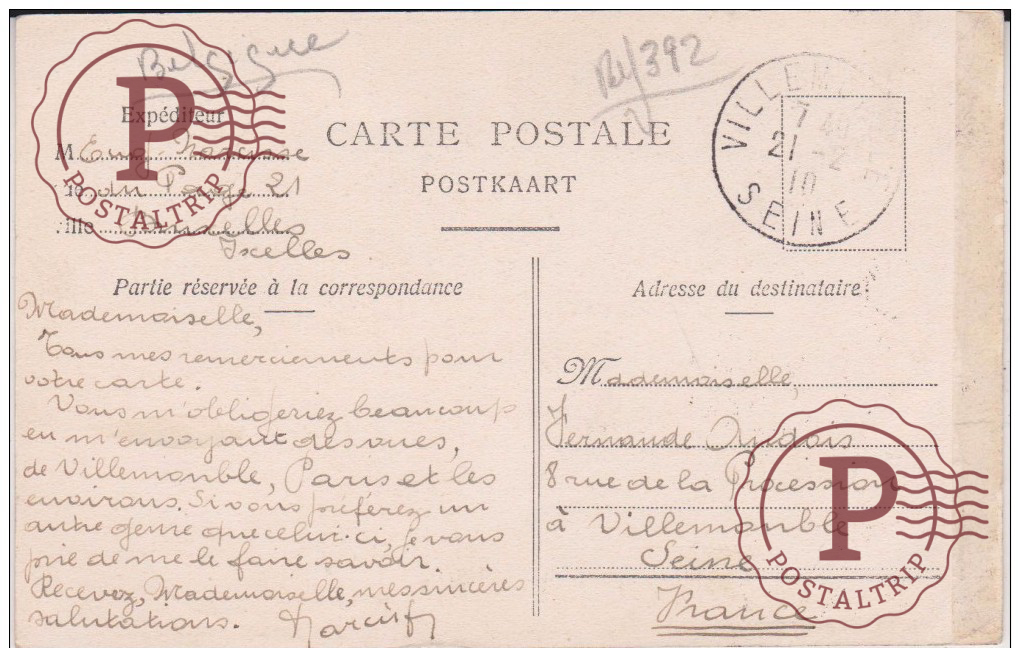 Belgique
Ry/392
Expéditeur
M
21
Ville Bruxelles
Ixelles
CARTE POSTALE
POSTKAART
VILLEM
7
21 - 2
10
SEINE
Partie réservée à la correspondance
Adresse du destinataire
Mademoiselle,
Tous mes remerciements pour
votre carte.
Vous m'obligeriez beaucoup
en m'envoyant des vues,
de Villemonble, Paris et les
environs. Si vous préférez un
autre genre que celui-ci, je vous
prie de me le faire savoir.
Recevez, Mademoiselle, mes sincères
salutations.
Mademoiselle,
Fernande
8 rue de la Procession
à Villemonble
Seine
France
P
POSTALTRIP
P
POSTALTRIP